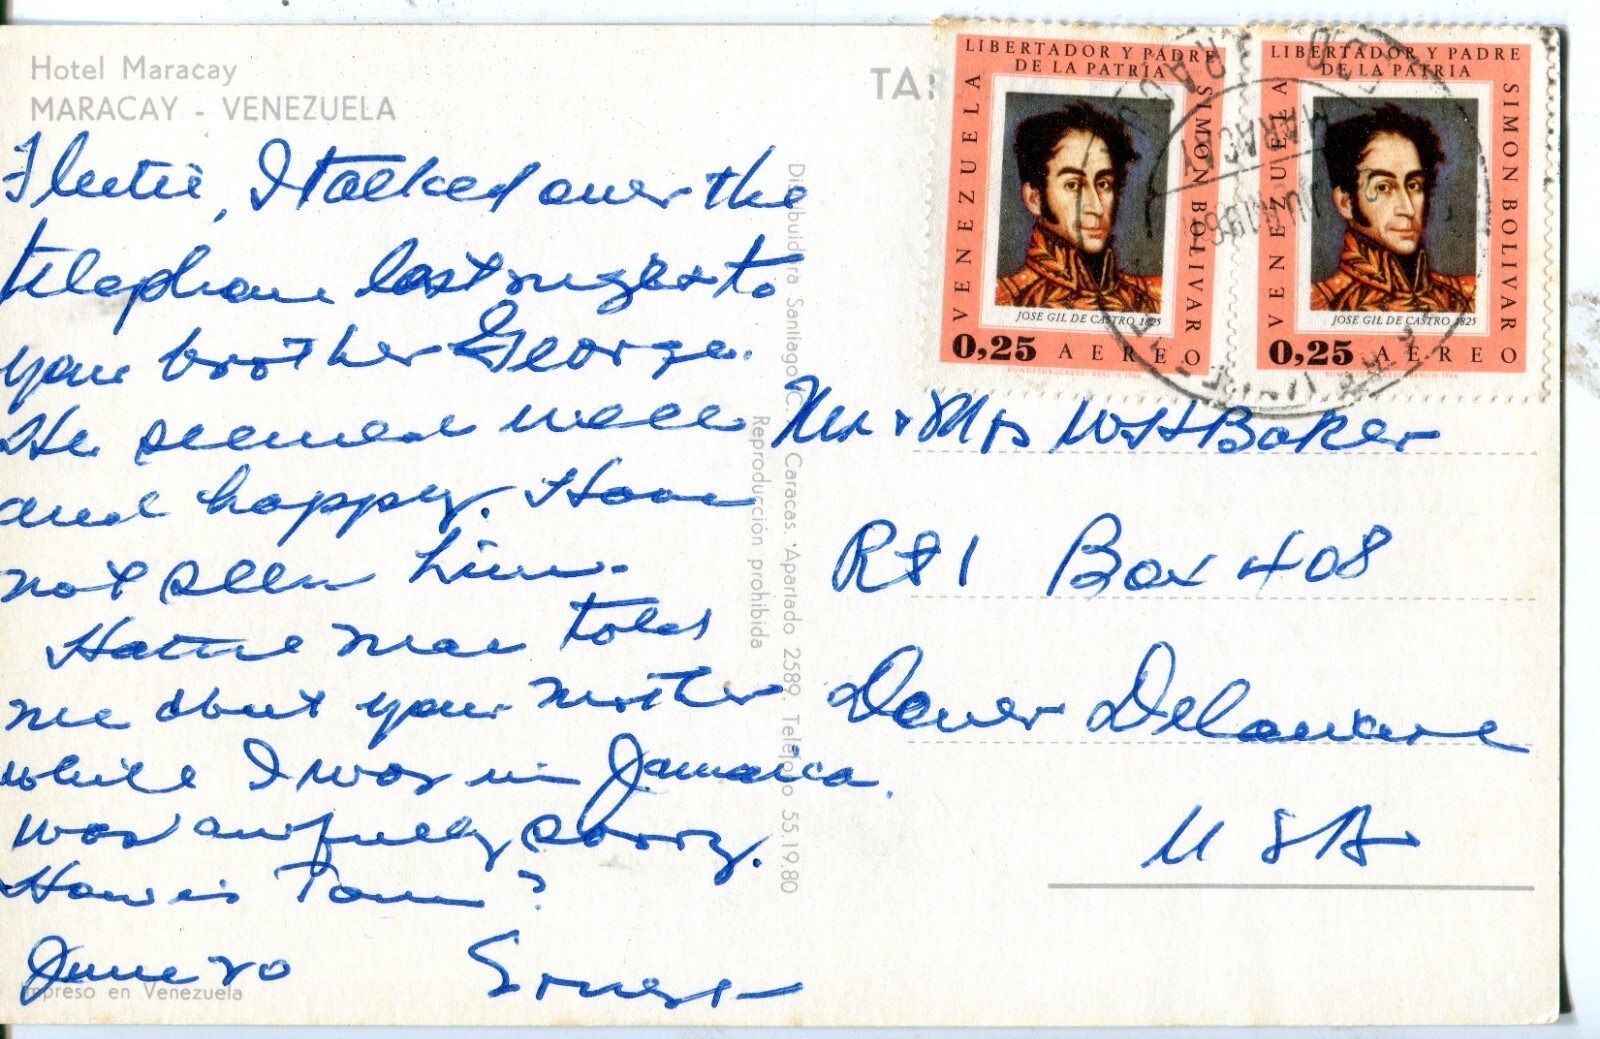 Hotel Maracay
MARACAY - VENEZUELA
I talked over the
telephone last night to
your brother George.
He seemed well
and happy. Have
not seen him.
Hattie Mae told
me about your mother
while I was in Jamaica.
was awfully sorry.
How is Tom?
June 20 Ernest
Impreso en Venezuela
Distribuidora Santiago C. Caracas. Apartado 2589. Teléfono 55.19.80
Reproducción prohibida
TAR
LIBERTADOR Y PADRE
DE LA PATRIA
VENEZUELA
SIMON BOLIVAR
JOSE GIL DE CASTRO 1825
0,25 AEREO
BUNDESDRUCKEREI BERLIN 1966
LIBERTADOR Y PADRE
DE LA PATRIA
VENEZUELA
SIMON BOLIVAR
JOSE GIL DE CASTRO 1825
0,25 AEREO
MARACAY
JUN
Mr & Mrs W H Baker
Rt 1 Box 408
Dover Delaware
USA